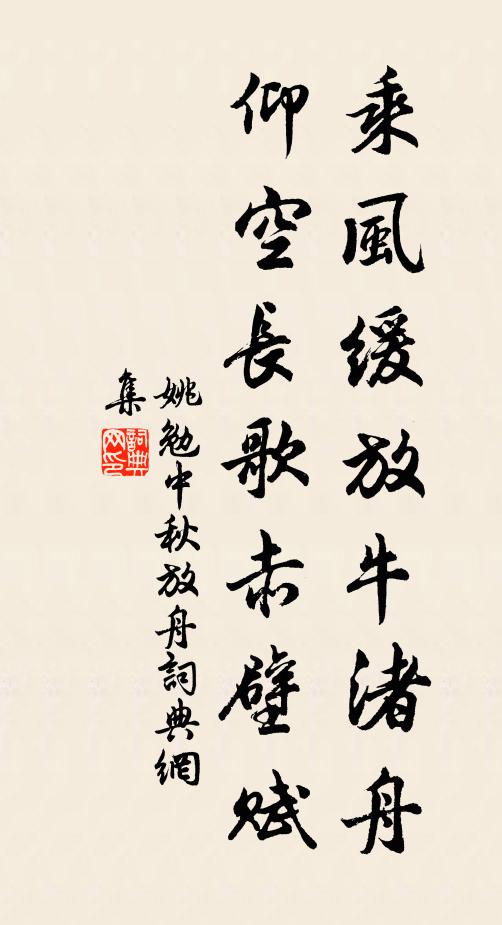 乘風缓放牛渚舟
仰空長歌赤壁賦
姚勉中秋放舟詞典網
集
詞典
网印